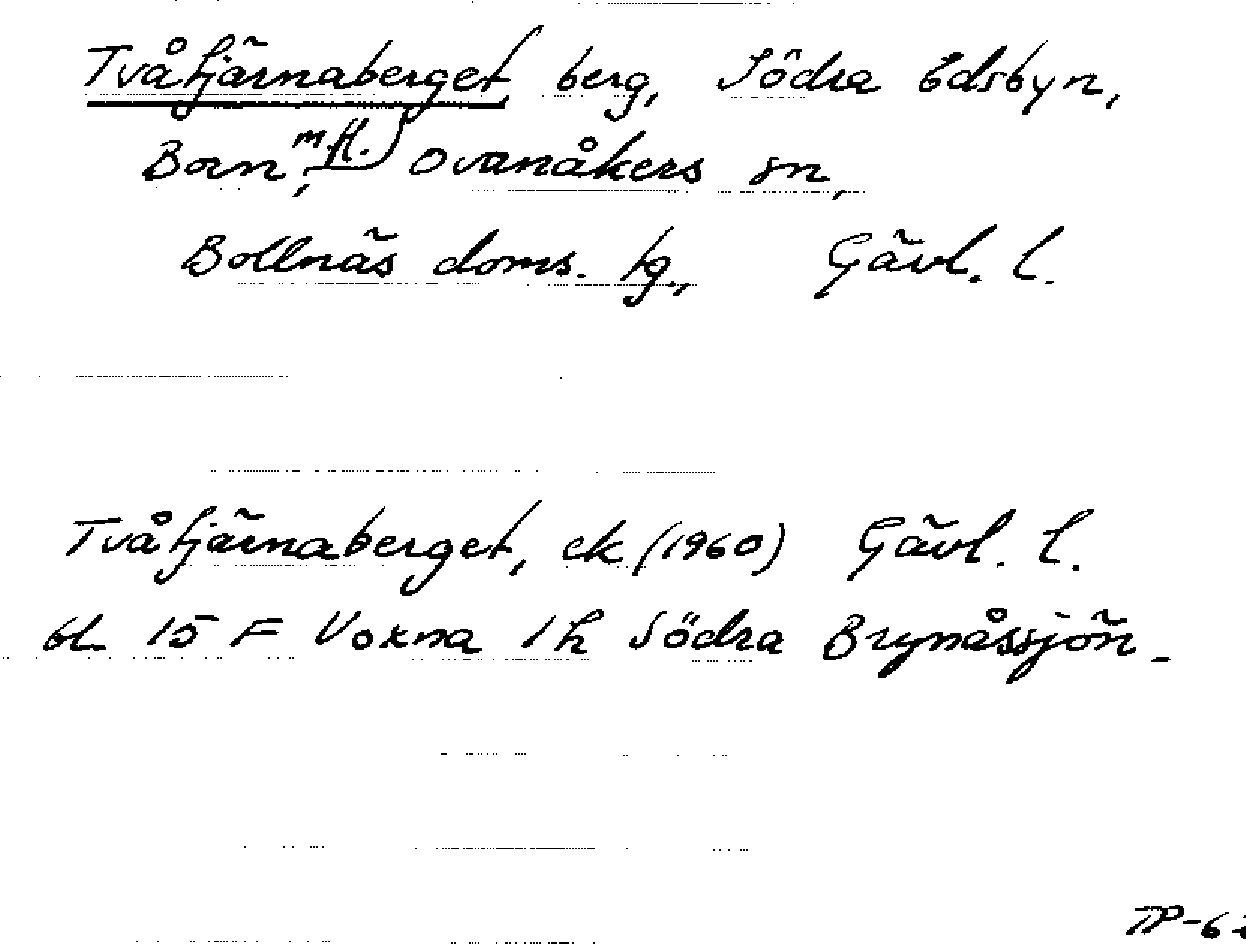 Tvåtjärnaberget, berg, Södra Edsbyn,
Born, m.fl.) Ovanåkers sn,
Bollnäs doms. tg., Gävl. l.
Tvåtjärnaberget, ek (1960) Gävl. l.
bl 15 F Voxna 1h Södra Brynåssjön.